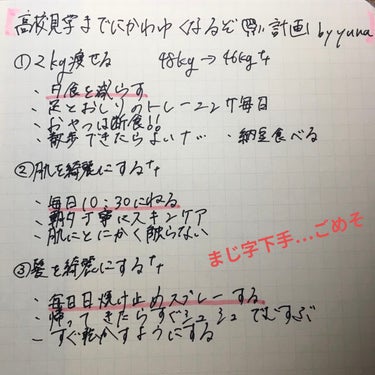 高校見学までにかわゆくなるぞ 計画 by yuna
①2kg痩せる 48kg→46kg
・夕食を減らす
・足とおしりのトレーニング毎日
・おやつは断食!!
・散歩できたらよいナ… ・納豆食べる
②肌を綺麗にする
・毎日10:30にねる
・朝夕丁寧にスキンケア
・肌にとにかく触らない
まじ字下手…ごめそ
③髪を綺麗にする
・毎日日焼け止めスプレーする
・帰ってきたらすぐシュシュでむすぶ
・すぐ乾かすようにする